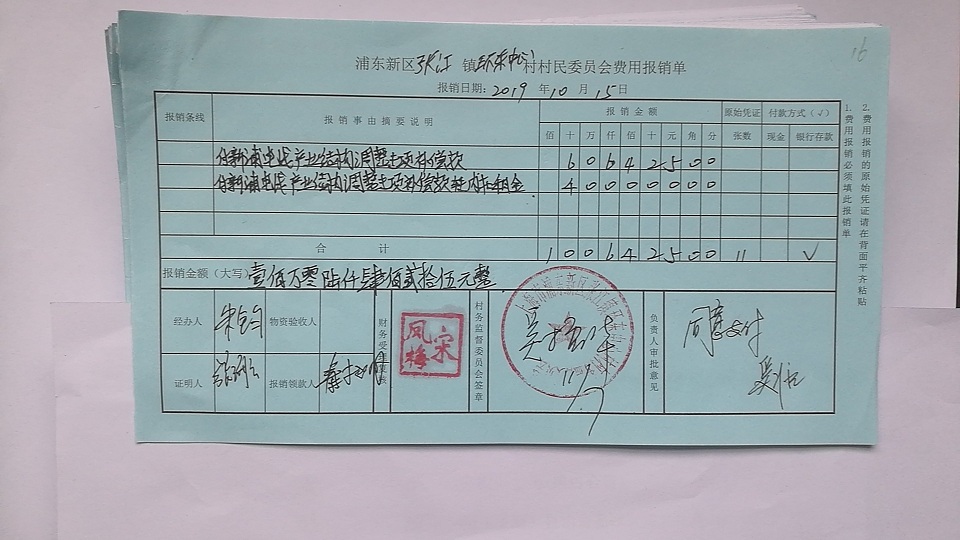 16
浦东新区张江镇环东中心村村民委员会费用报销单
报销日期：2019年10月15日
报销条线 报销事由摘要说明 报销金额 原始凭证 付款方式（√）
佰 十 万 仟 佰 十 元 角 分 张数 现金 银行存款
付新浦电线产业结构调整专项补偿款 6 0 6 4 2 5 0 0
付新浦电线产业结构调整专项补偿款 租金 4 0 0 0 0 0 0 0
合计 1 0 0 6 4 2 5 0 0 11 √
报销金额（大写）壹佰万零陆仟肆佰贰拾伍元整
经办人 物资验收人
证明人 报销领款人
财务受理审核
宋凤梅
村务监督委员会签章
负责人审批意见
同意支付
1.费用报销必须填此报销单
2.费用报销的原始凭证请在背面平齐粘贴